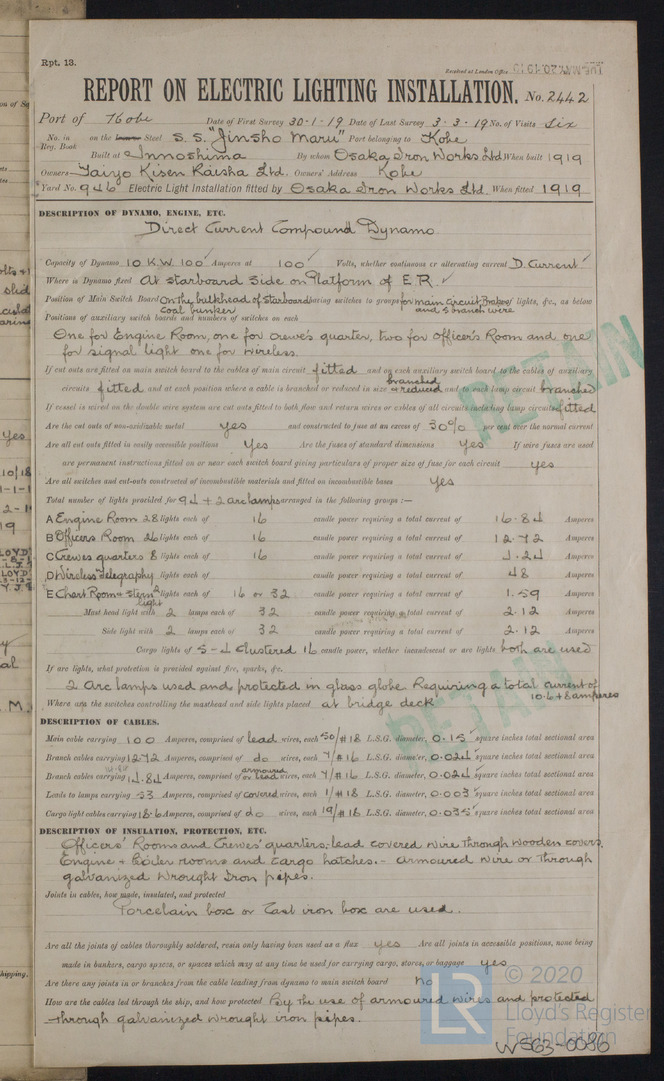 Rpt. 13.
Received at London Office TUE. MAY. 20. 1919
REPORT ON ELECTRIC LIGHTING INSTALLATION. No. 2442
Port of Kobe Date of First Survey 30·1·19 Date of Last Survey 3·3·19 No. of Visits Six
No. in Reg. Book on the Iron or Steel S.S. "Jinsho Maru" Port belonging to Kobe
Built at Innoshima By whom Osaka Iron Works Ltd When built 1919
Owners Taiyo Kisen Kaisha Ltd. Owners' Address Kobe
Yard No. 946 Electric Light Installation fitted by Osaka Iron Works Ltd. When fitted 1919
DESCRIPTION OF DYNAMO, ENGINE, ETC.
Direct Current Compound Dynamo
Capacity of Dynamo 10 K.W. 100 Amperes at 100 Volts, whether continuous or alternating current D. Current
Where is Dynamo fixed At starboard side on Platform of E.R.
Position of Main Switch Board On the bulkhead of starboard coal bunker having switches to groups for main circuit, of lights, &c., as below and 5 branch were
Positions of auxiliary switch boards and numbers of switches on each
One for Engine Room, one for crewe's quarter, two for Officer's Room and one
for signal light one for wireless.
If cut outs are fitted on main switch board to the cables of main circuit fitted and on each auxiliary switch board to the cables of auxiliary
circuits fitted and at each position where a cable is branched or reduced in size branched reduced and to each lamp circuit branched
If vessel is wired on the double wire system are cut outs fitted to both flow and return wires or cables of all circuits including lamp circuits fitted
Are the cut outs of non-oxidizable metal yes and constructed to fuse at an excess of 30% per cent over the normal current
Are all cut outs fitted in easily accessible positions Yes Are the fuses of standard dimensions yes If wire fuses are used
are permanent instructions fitted on or near each switch board giving particulars of proper size of fuse for each circuit yes
Are all switches and cut-outs constructed of incombustible materials and fitted on incombustible bases yes
Total number of lights provided for 94 + 2 arc lamps arranged in the following groups :—
A Engine Room 28 lights each of 16 candle power requiring a total current of 16.84 Amperes
B Officers Room 26 lights each of 16 candle power requiring a total current of 12.72 Amperes
C Crewes quarters 8 lights each of 16 candle power requiring a total current of 4.24 Amperes
D Wireless Telegraphy lights each of candle power requiring a total current of 48 Amperes
E Chart Room + stern light 2 lights each of 16 or 32 candle power requiring a total current of 1.59 Amperes
Mast head light with 2 lamps each of 32 candle power requiring a total current of 2.12 Amperes
Side light with 2 lamps each of 32 candle power requiring a total current of 2.12 Amperes
Cargo lights of 5-4 clustered 16 candle power, whether incandescent or arc lights both are used
If arc lights, what protection is provided against fire, sparks, &c.
2 arc lamps used and protected in glass globe. Requiring a total current of
10.6 + 8 amperes
Where are the switches controlling the masthead and side lights placed at bridge deck
DESCRIPTION OF CABLES.
Main cable carrying 100 Amperes, comprised of lead wires, each 50/#18 L.S.G. diameter, 0.15 square inches total sectional area
Branch cables carrying 12.72 Amperes, comprised of do wires, each 7/#16 L.S.G. diameter, 0.024 square inches total sectional area
Branch cables carrying 14.84 Amperes, comprised of armoured or lead wires, each 7/#16 L.S.G. diameter, 0.024 square inches total sectional area
Leads to lamps carrying .53 Amperes, comprised of covered wires, each 1/#18 L.S.G. diameter, 0.003 square inches total sectional area
Cargo light cables carrying 18.6 Amperes, comprised of do wires, each 19/#18 L.S.G. diameter, 0.035 square inches total sectional area
DESCRIPTION OF INSULATION, PROTECTION, ETC.
Officers' Rooms and Crewes' quarters; lead covered wire through wooden covers,
Engine + Boiler rooms and cargo hatches. – Armoured wire or through
galvanized wrought iron pipes.
Joints in cables, how made, insulated, and protected
Porcelain box or Cast iron box are used.
Are all the joints of cables thoroughly soldered, resin only having been used as a flux yes Are all joints in accessible positions, none being
made in bunkers, cargo spaces, or spaces which may at any time be used for carrying cargo, stores, or baggage yes
Are there any joints in or branches from the cable leading from dynamo to main switch board no
How are the cables led through the ship, and how protected By the use of armoured wires and protected
through galvanized wrought iron pipes.
RETAIN
RETAIN
LR © 2020
Lloyd's Register
Foundation
W563-0086